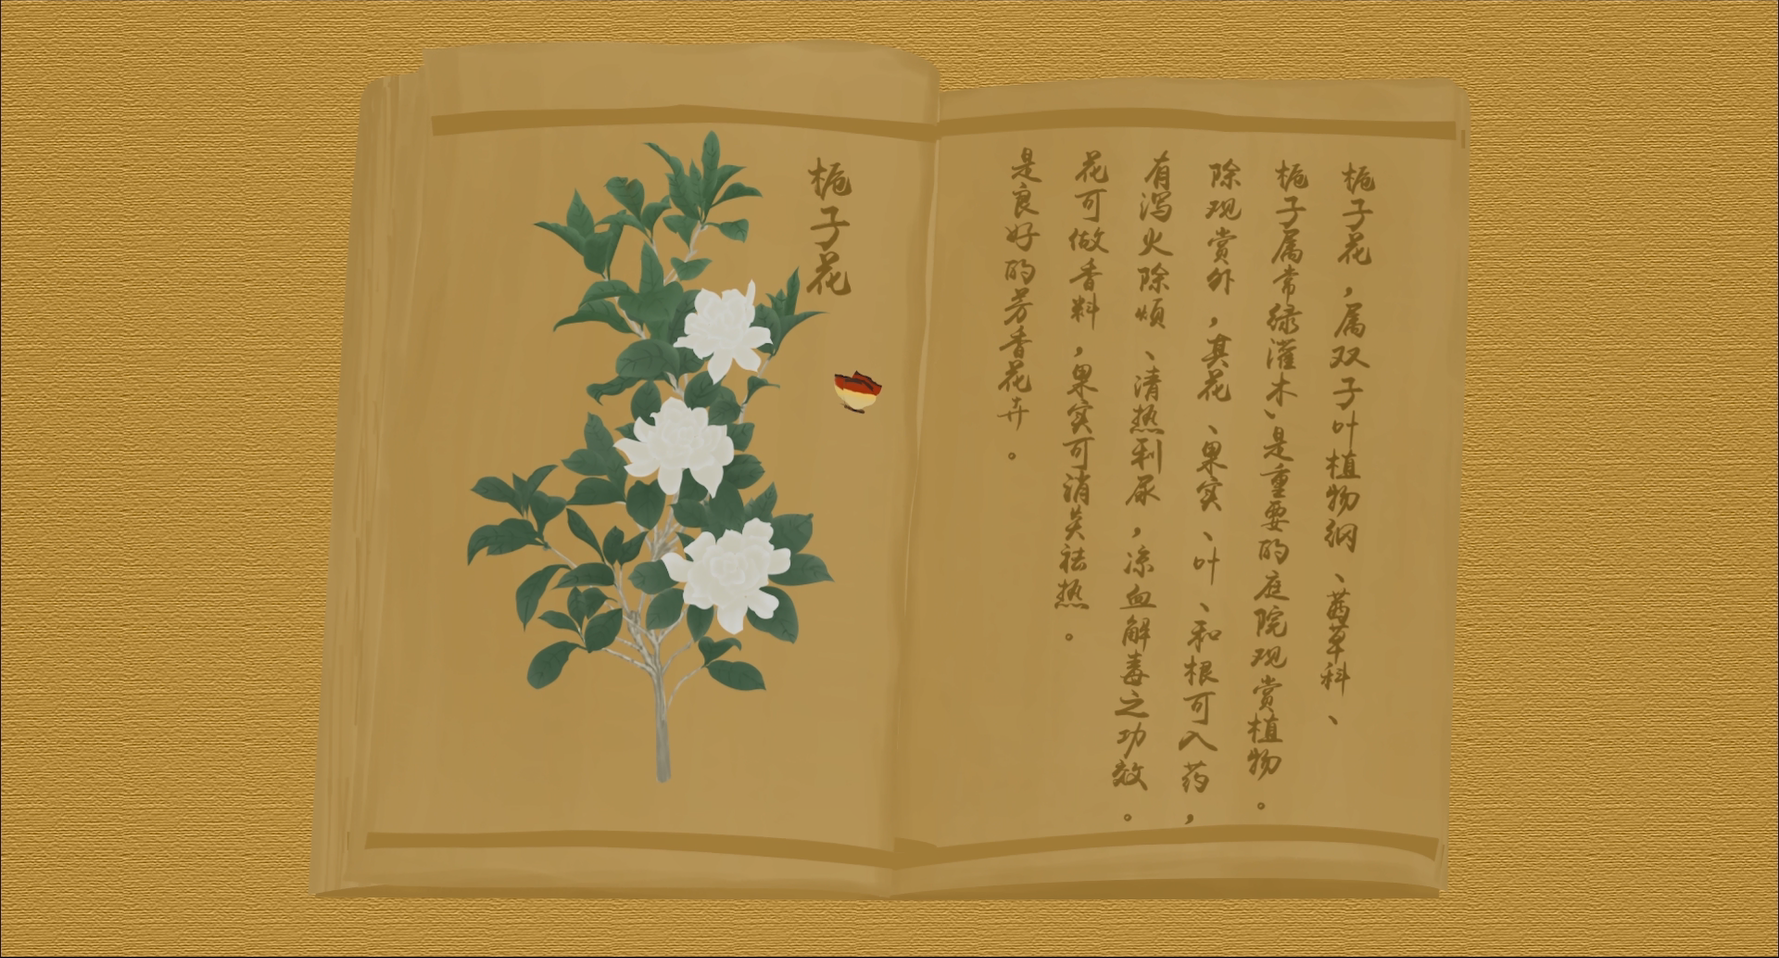 栀子花
栀子花，属双子叶植物纲、茜草科、
栀子属常绿灌木、是重要的庭院观赏植物。
除观赏外，其花、果实、叶、和根可入药，
有泻火除烦、清热利尿，凉血解毒之功效。
花可做香料，果实可消炎祛热。
是良好的芳香花卉。